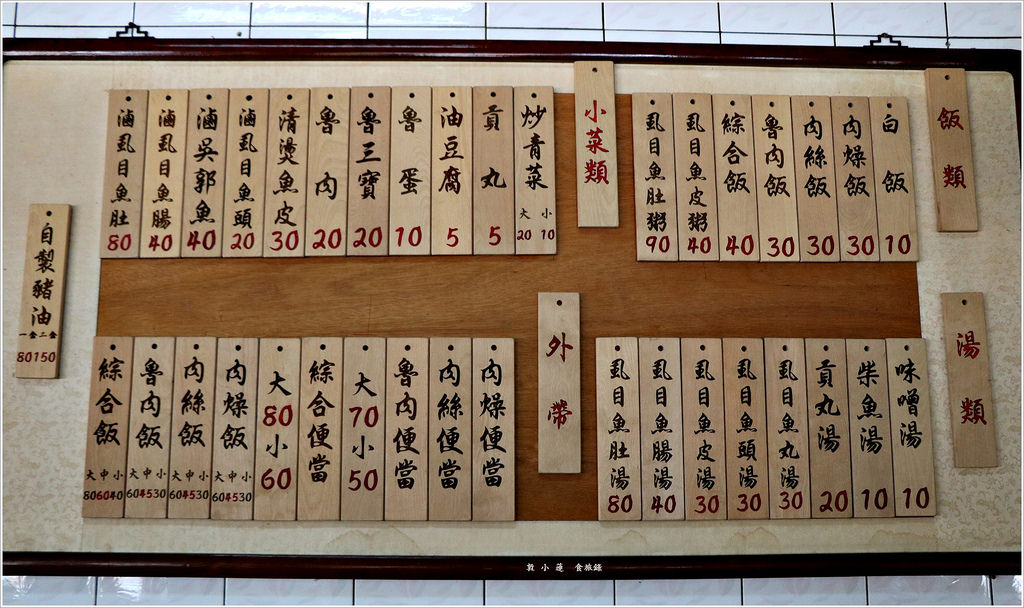 飯類
白飯 10
肉燥飯 30
肉絲飯 30
魯肉飯 30
綜合飯 40
虱目魚皮粥 40
虱目魚肚粥 90
小菜類
炒青菜 大20 小10
貢丸 5
油豆腐 5
魯蛋 10
魯三寶 20
魯肉 20
清燙魚皮 30
滷虱目魚頭 20
滷吳郭魚 40
滷虱目魚腸 40
滷虱目魚肚 80
湯類
味噌湯 10
柴魚湯 10
貢丸湯 20
虱目魚丸湯 30
虱目魚頭湯 30
虱目魚皮湯 30
虱目魚腸湯 40
虱目魚肚湯 80
外帶
肉燥便當
肉絲便當
魯肉便當
大70小50
綜合便當
大80小60
肉燥飯 大中小 604530
肉絲飯 大中小 604530
魯肉飯 大中小 604530
綜合飯 大中小 806040
自製豬油 一盒二盒 80150
敦小蓮 食旅錄